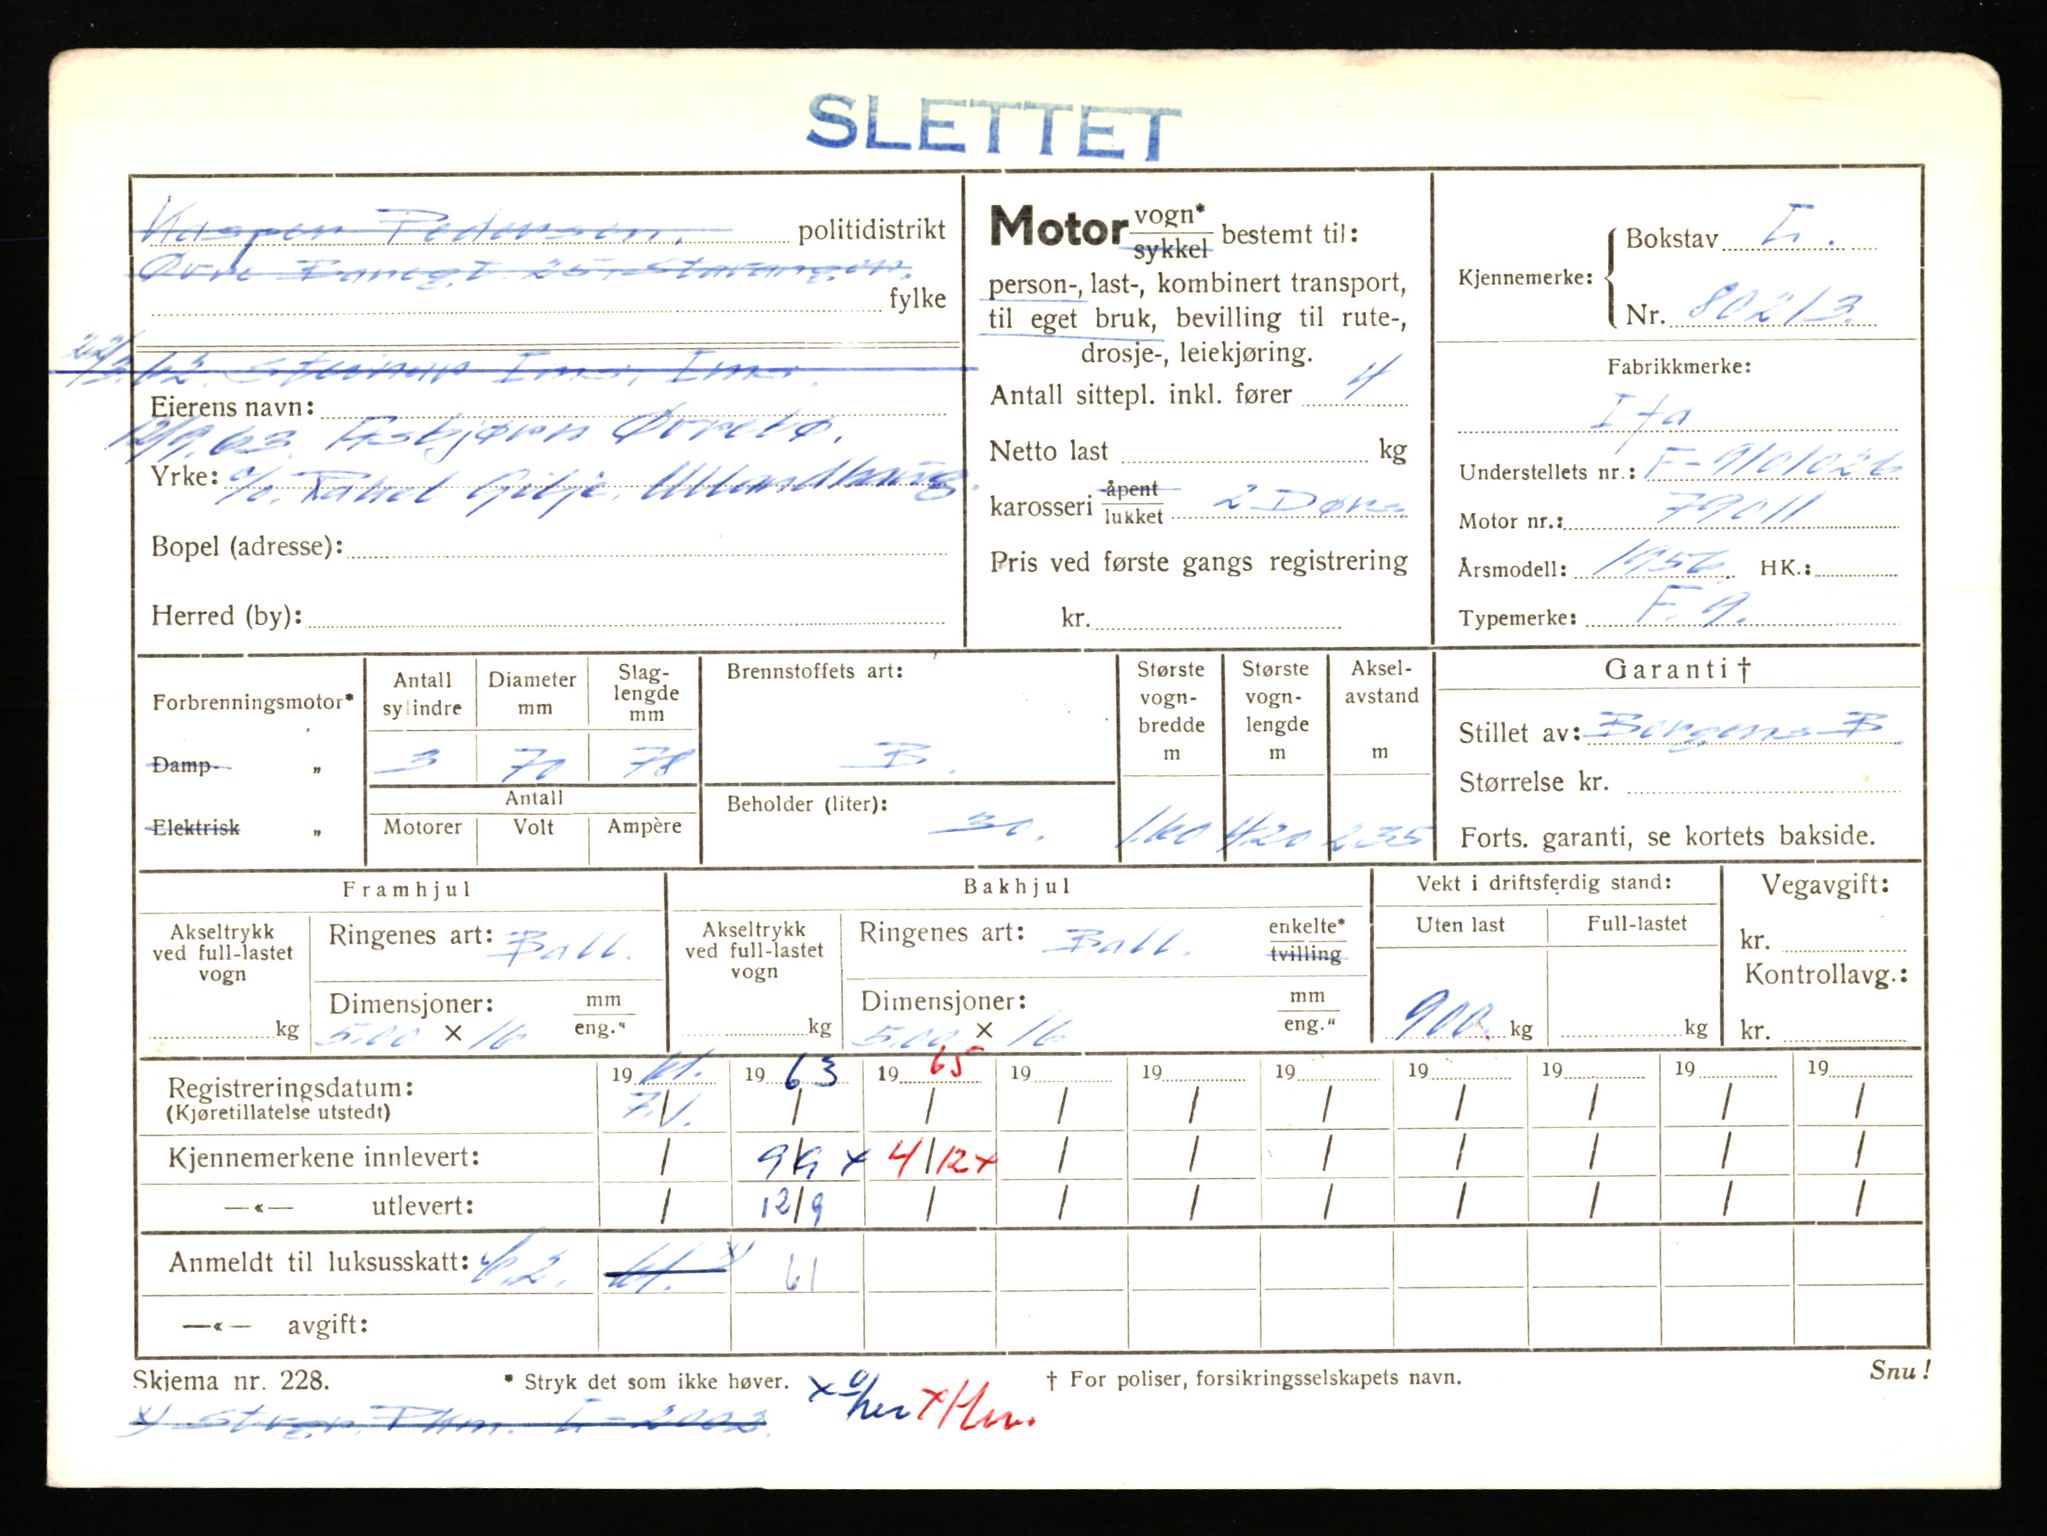 SLETTET
Kasper Pedersen. politidistrikt
Øvre Banegt 25, Stavanger.
fylke
62. Steinar Ims, Ims.
Eierens navn:
12/9.63. Asbjørn Øvrebø.
Yrke: c/o. Rakel Gilje. Ullandhaug.
Bopel (adresse):
Herred (by):
Motor vogn* sykkel bestemt til:
person-, last-, kombinert transport,
til eget bruk, bevilling til rute-,
drosje-, leiekjøring.
Antall sittepl. inkl. fører 4
Netto last kg
karosseri åpent lukket 2 Dørs
Pris ved første gangs registrering
kr.
Kjennemerke: { Bokstav L.
Nr. 80213.
Fabrikkmerke:
Ifa
Understellets nr.: F-9101026
Motor nr.: 79011
Årsmodell: 1956. HK.:
Typemerke: F. 9.
Forbrenningsmotor*
Damp- „
Elektrisk „
Antall sylindre Diameter mm Slag-lengde mm
3 70 78
Antall
Motorer Volt Ampère
Brennstoffets art:
B.
Beholder (liter):
30.
Største vogn-bredde m
160
Største vogn-lengde m
420
Aksel-avstand m
235
Garanti †
Stillet av: Bergens B
Størrelse kr.
Forts. garanti, se kortets bakside.
Framhjul
Akseltrykk ved full-lastet vogn
kg
Ringenes art: Ball.
Dimensjoner: mm eng."
5.00 × 16
Bakhjul
Akseltrykk ved full-lastet vogn
kg
Ringenes art: Ball. enkelte* tvilling
Dimensjoner: mm eng."
5.00 × 16
Vekt i driftsferdig stand:
Uten last Full-lastet
900. kg kg
Vegavgift:
kr.
Kontrollavg.:
kr.
Registreringsdatum: 19 61. 19 63 19 65 19 19 19 19 19 19 19
(Kjøretillatelse utstedt) 7./1. / / / / / / / / /
Kjennemerkene innlevert: / 9/9 x 4/12 x / / / / / / /
—«— utlevert: / 12/9 / / / / / / / /
Anmeldt til luksusskatt: 61. x) 61
—«— avgift:
Skjema nr. 228. * Stryk det som ikke høver. † For poliser, forsikringsselskapets navn. Snu!
x) Pkm. L-2002.